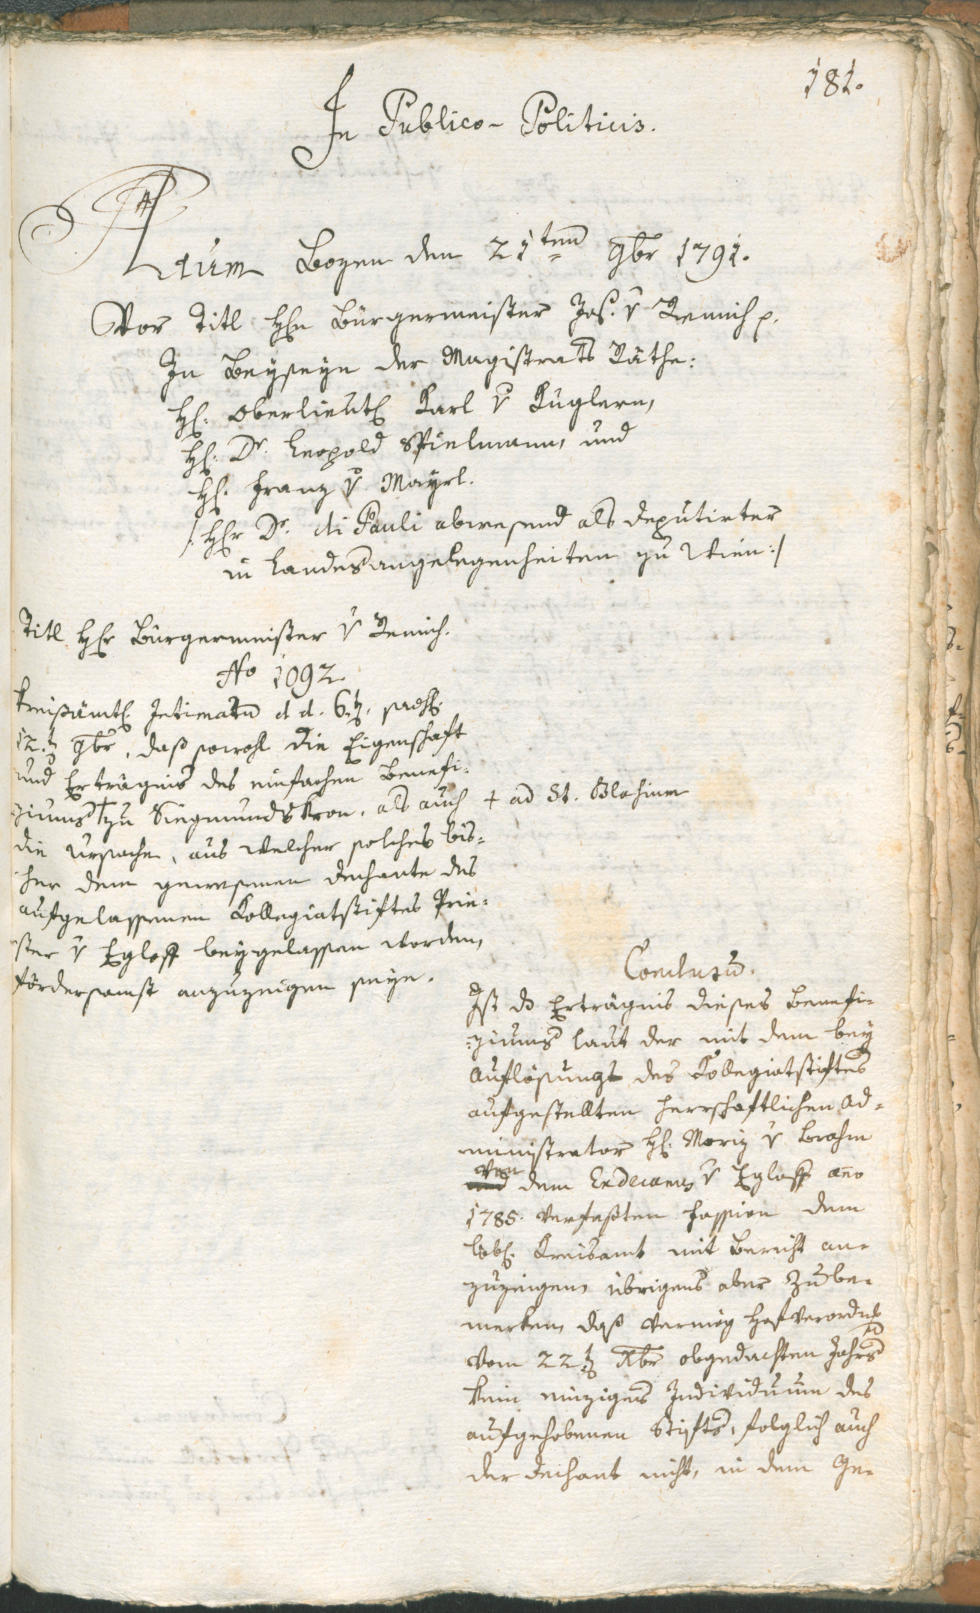 181.
In Publico-Politicis.
Actum Bozen den 21ten 9br 1791.
Vor Titl Hhn Bürgermeister Jos. v Remich p.
In Beyseyn der Magistrats Räthe:
H: Oberlieut Karl v Kuglern,
H: Dr. Leopold Spielmann, und
H: Franz v Mayrl.
/: Hhr Dr. di Pauli abwesend als deputirter
in Landesangelegenheiten zu Wien:/
Titl Hhr Bürgermeister v Remich.
No 1092.
Kreisämtl Intimatum d d. 6t,
12t 9br, daß sowohl die Eigenschaft
und Erträgnis des einfachen Benefi-
ziums + zu Siegmundskron, als auch + ad St. Blasium
die Ursache, aus welcher solches bis-
her dem gewesenen Dechante des
aufgelassenen Kollegiatstiftes Prie-
ster v Egloff beygelassen worden,
fördersamst anzuzeigen seye.
Conclusum.
Ist das Erträgnis dieses Benefi-
ziums laut der mit dem bey
Auflösung des Kollegiatstiftes
aufgestellten herrschaftlichen Ad-
ministrator H: Moriz v Brahm
von dem Exdecano v Egloff ano
1785. verfaßten Fassion dem
löbl. Kreisamt mit Bericht an-
zuzeigen, übrigens aber zu be-
merken, daß vermög Hofverordng
vom 22t Xbr obgedachten Jahrs
kein einziges Individuum des
aufgehobenen Stifts, folglich auch
der Dechant nicht, in dem Ge-